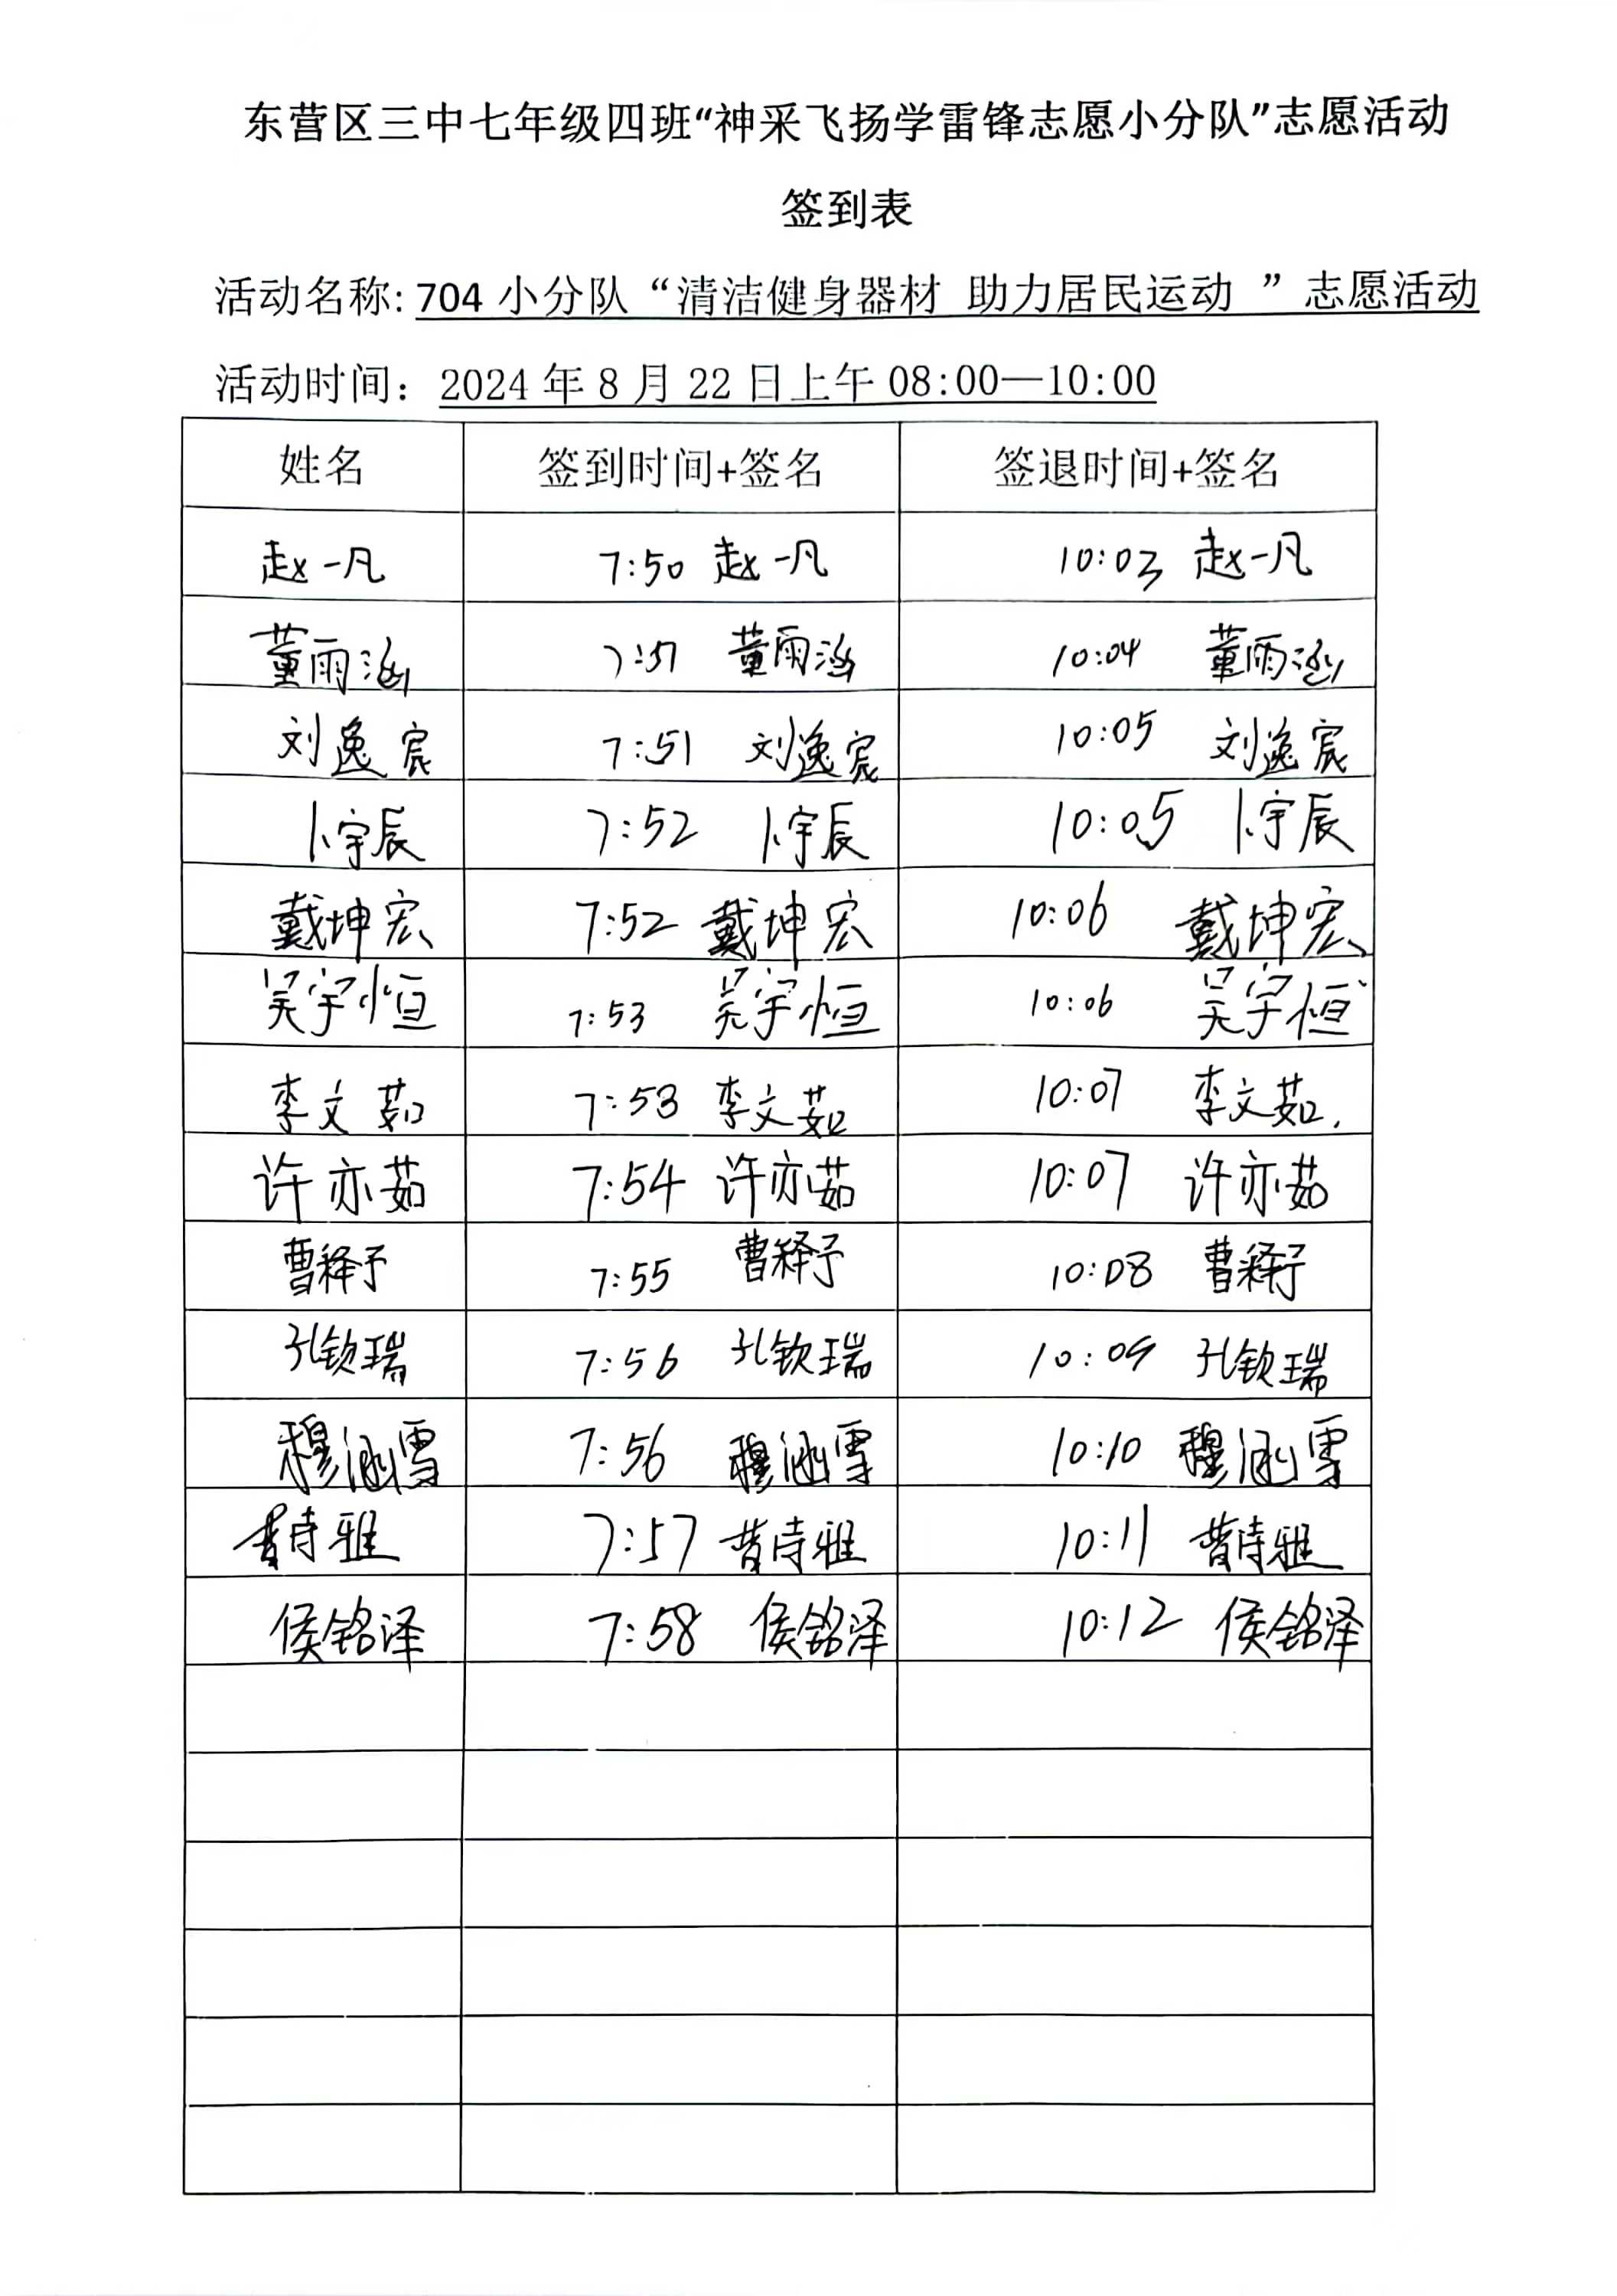 东营区三中七年级四班“神采飞扬学雷锋志愿小分队”志愿活动
签到表
活动名称: 704 小分队 “清洁健身器材 助力居民运动 ” 志愿活动
活动时间： 2024 年 8 月 22 日上午 08:00—10:00
姓名 签到时间+签名 签退时间+签名
赵一凡 7:50 赵一凡 10:03 赵一凡
董雨涵 7:51 董雨涵 10:04 董雨涵
刘逸宸 7:51 刘逸宸 10:05 刘逸宸
卜宇辰 7:52 卜宇辰 10:05 卜宇辰
戴坤宏 7:52 戴坤宏 10:06 戴坤宏
吴宇恒 7:53 吴宇恒 10:06 吴宇恒
李文茹 7:53 李文茹 10:07 李文茹
许亦茹 7:54 许亦茹 10:07 许亦茹
曹释予 7:55 曹释予 10:08 曹释予
孔钦瑞 7:56 孔钦瑞 10:09 孔钦瑞
穆涵雪 7:56 穆涵雪 10:10 穆涵雪
黄诗雅 7:57 黄诗雅 10:11 黄诗雅
侯铭泽 7:58 侯铭泽 10:12 侯铭泽